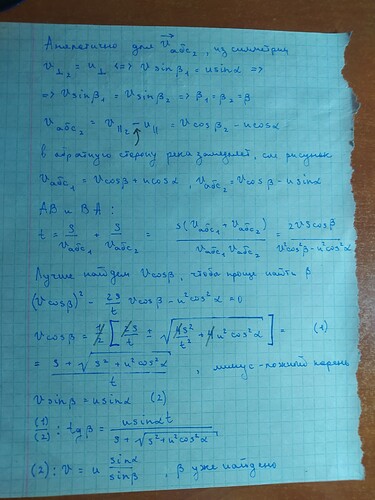 Аналогично для v⃗абс₂, из симметрии
v⊥₂ = u⊥ <=> v sinβ₁ = u sinα =>
=> v sinβ₁ = v sinβ₂ => β₁ = β₂ = β
vабс₂ = v||₂ - u|| = v cosβ₂ - u cosα
в обратную сторону река замедляет, см рисунок
vабс₁ = v cosβ + u cosα, vабс₂ = v cosβ - u sinα
AB и BA:
t = S/vабс₁ + S/vабс₂ = S(vабс₁ + vабс₂)/(vабс₁ vабс₂) = 2vS cosβ/(v²cos²β - u²cos²α)
Лучше найдём v cosβ, чтобы проще найти β
(v cosβ)² - 2S/t v cosβ - u²cos²α = 0
v cosβ = 1/2 [2S/t ± √(4S²/t² + 4u²cos²α)] = (1)
= (S + √(S² + u²cos²α))/t, минус - ложный корень
v sinβ = u sinα (2)
(1)/(2): tgβ = u sinα t/(S + √(S² + u²cos²α))
(2): v = u sinα/sinβ, β уже найдено